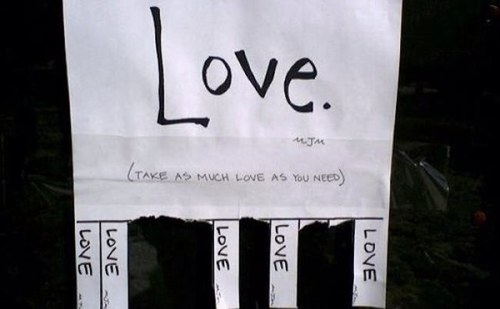 Love.
MJM
(TAKE AS MUCH LOVE AS YOU NEED)
LOVE
LOVE
LOVE
LOVE
LOVE